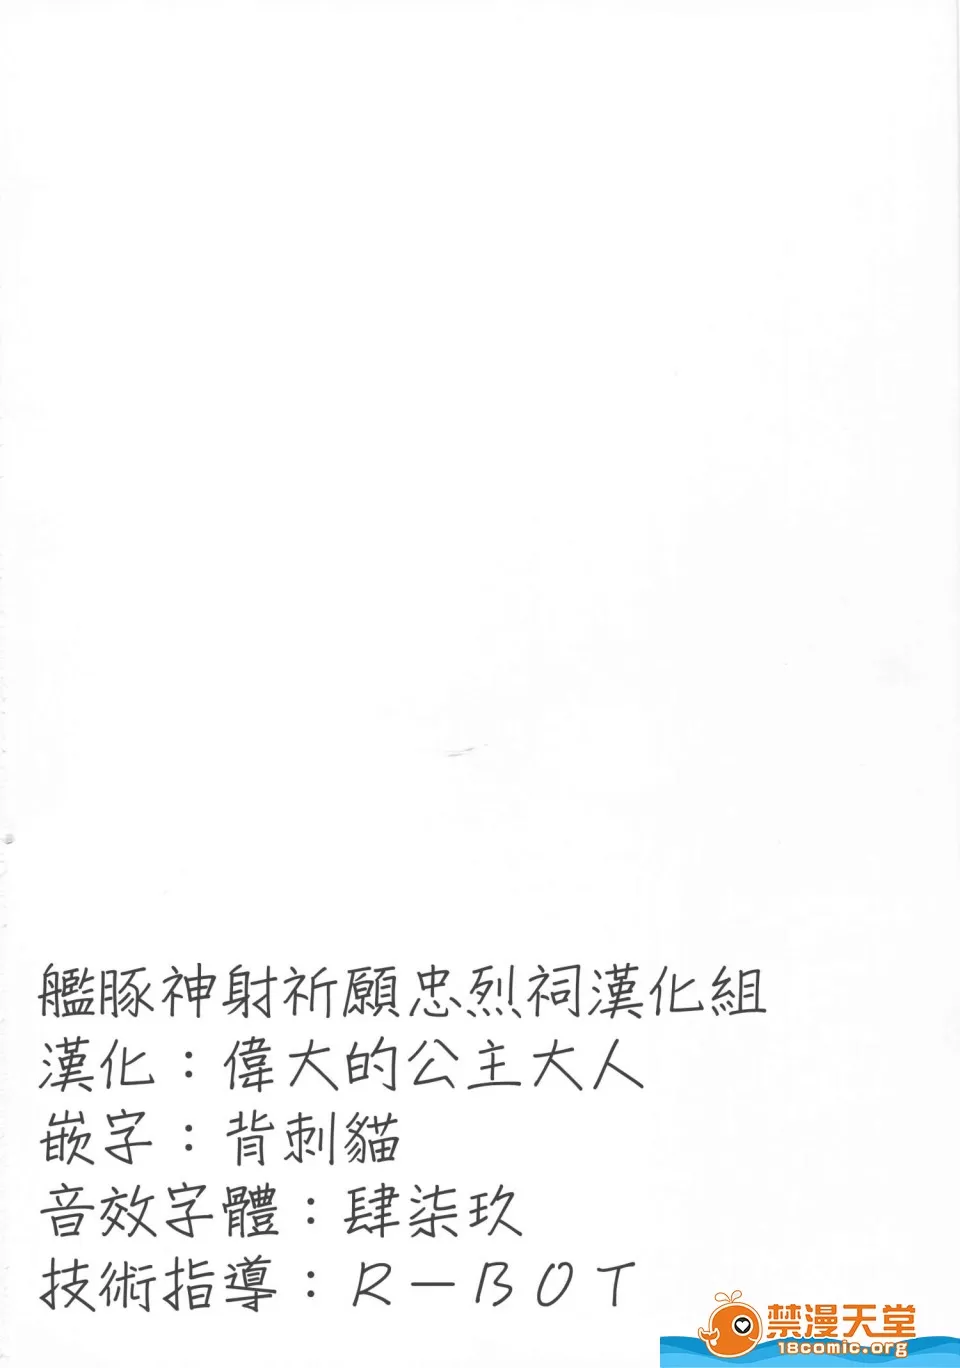 艦豚神射祈願忠烈祠漢化組
漢化：偉大的公主大人
嵌字：背刺貓
音效字體：肆柒玖
技術指導：R－BOT
禁漫天堂
18comic.org